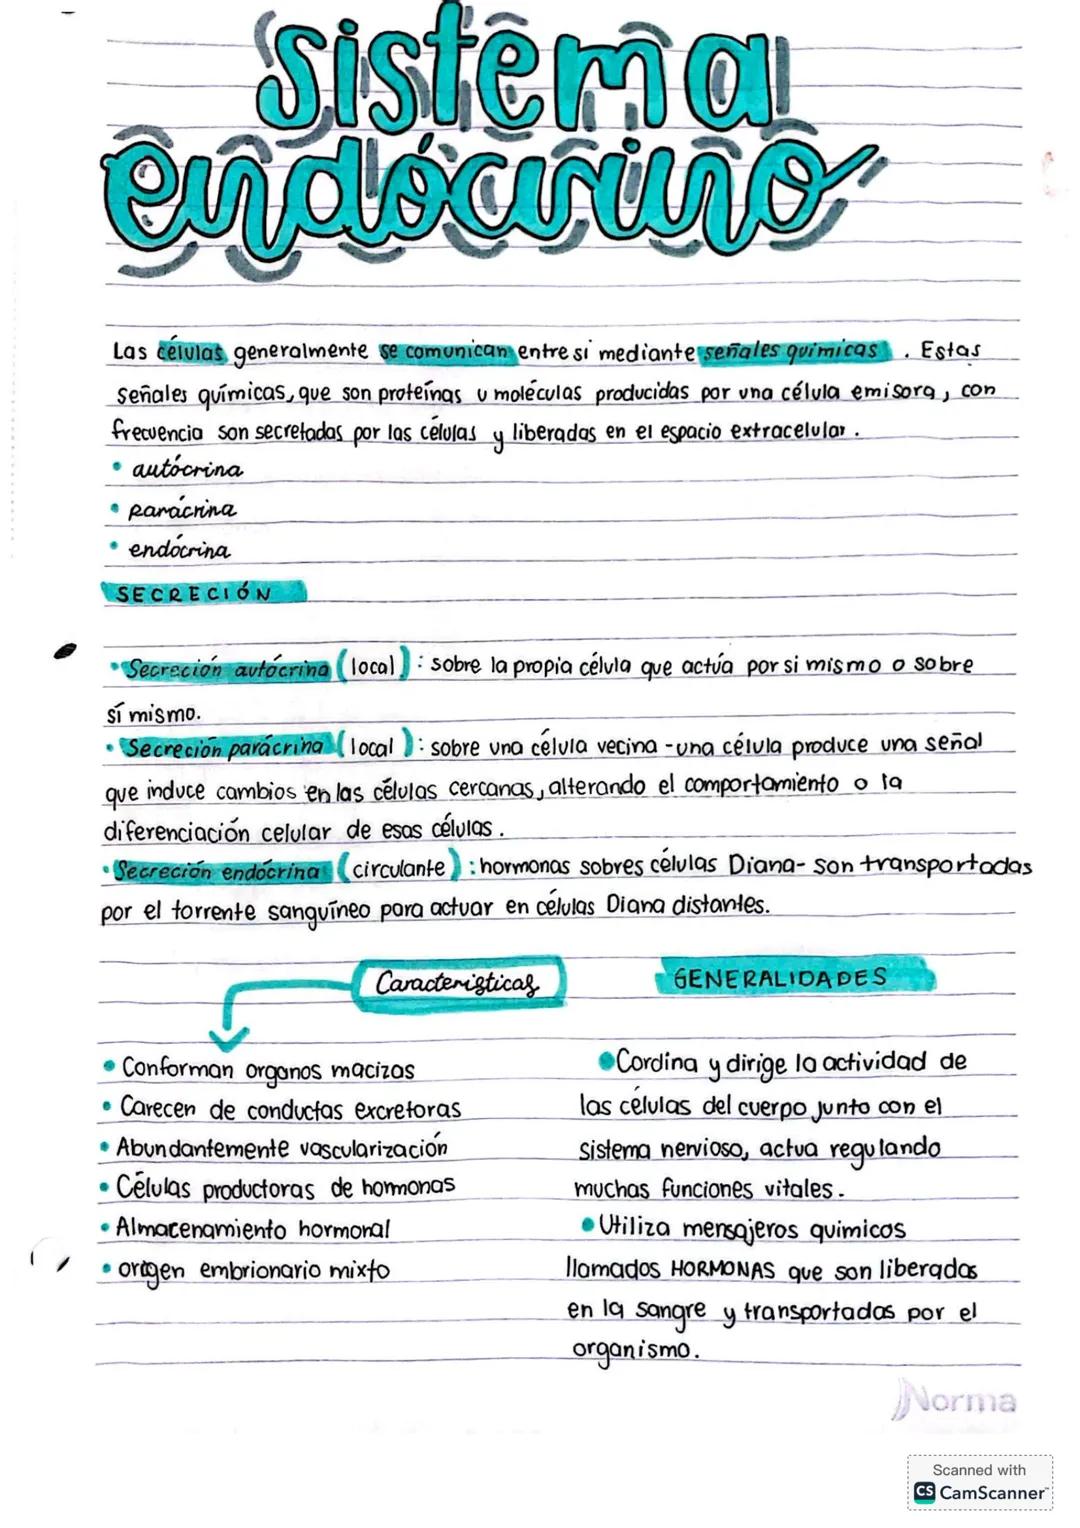 sistema
endócrino
Las células generalmente se comunican entre si mediante señales quimicas . Estas
señales químicas, que son proteínas u moléculas producidas por una célula emisora, con
frecuencia son secretadas por las células y liberadas en el espacio extracelular.
• autócrina
• parácrina
• endócrina
SECRECIÓN
• Secreción autócrina (local) : sobre la propia célula que actúa por si mismo o sobre
sí mismo.
• Secreción parácrina (local) : sobre una célula vecina - una célula produce una señal
que induce cambios en las células cercanas, alterando el comportamiento o la
diferenciación celular de esas células.
• Secreción endócrina (circulante) : hormonas sobres células Diana - son transportadas
por el torrente sanguíneo para actuar en células Diana distantes.
Caracteristicas
• Conforman organos macizas
• Carecen de conductas excretoras
• Abundantemente vascularización
• Células productoras de hormonas
• Almacenamiento hormonal
• origen embrionario mixto
GENERALIDADES
• Cordina y dirige la actividad de
las células del cuerpo junto con el
sistema nervioso, actua regulando
muchas funciones vitales.
• Utiliza mensajeros quimicos
llamados HORMONAS que son liberadas
en la sangre y transportadas por el
organismo.
Norma
Scanned with
CS CamScanner